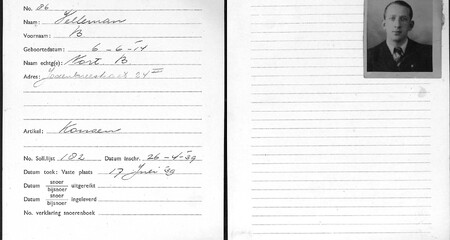 No. 86
Naam: Velleman
Voornaam: B
Geboortedatum: 6-6-14
Naam echtg(e): Kort. B
Adres: 84 II
Artikel: Kousen
No. Soll.lijst 182 Datum inschr. 26-4-39
Datum took: Vaste plaats 17 Juli 40
Datum snoer
bijsnoer uitgereikt
Datum snoer
bijsnoer ingeleverd
No. verklaring snoerenboek